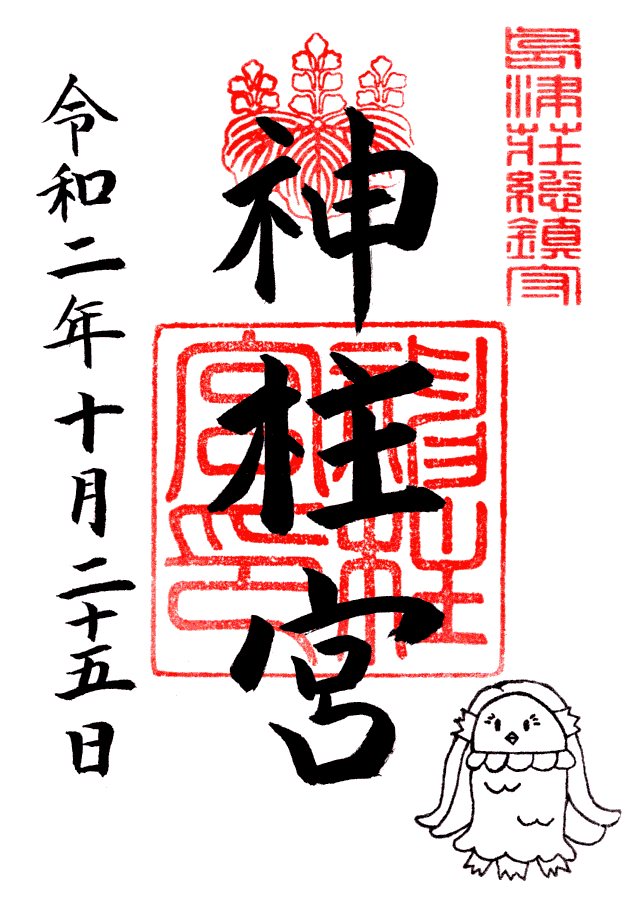 島津荘総鎮守
神柱宮
神柱宮印
令和二年十月二十五日